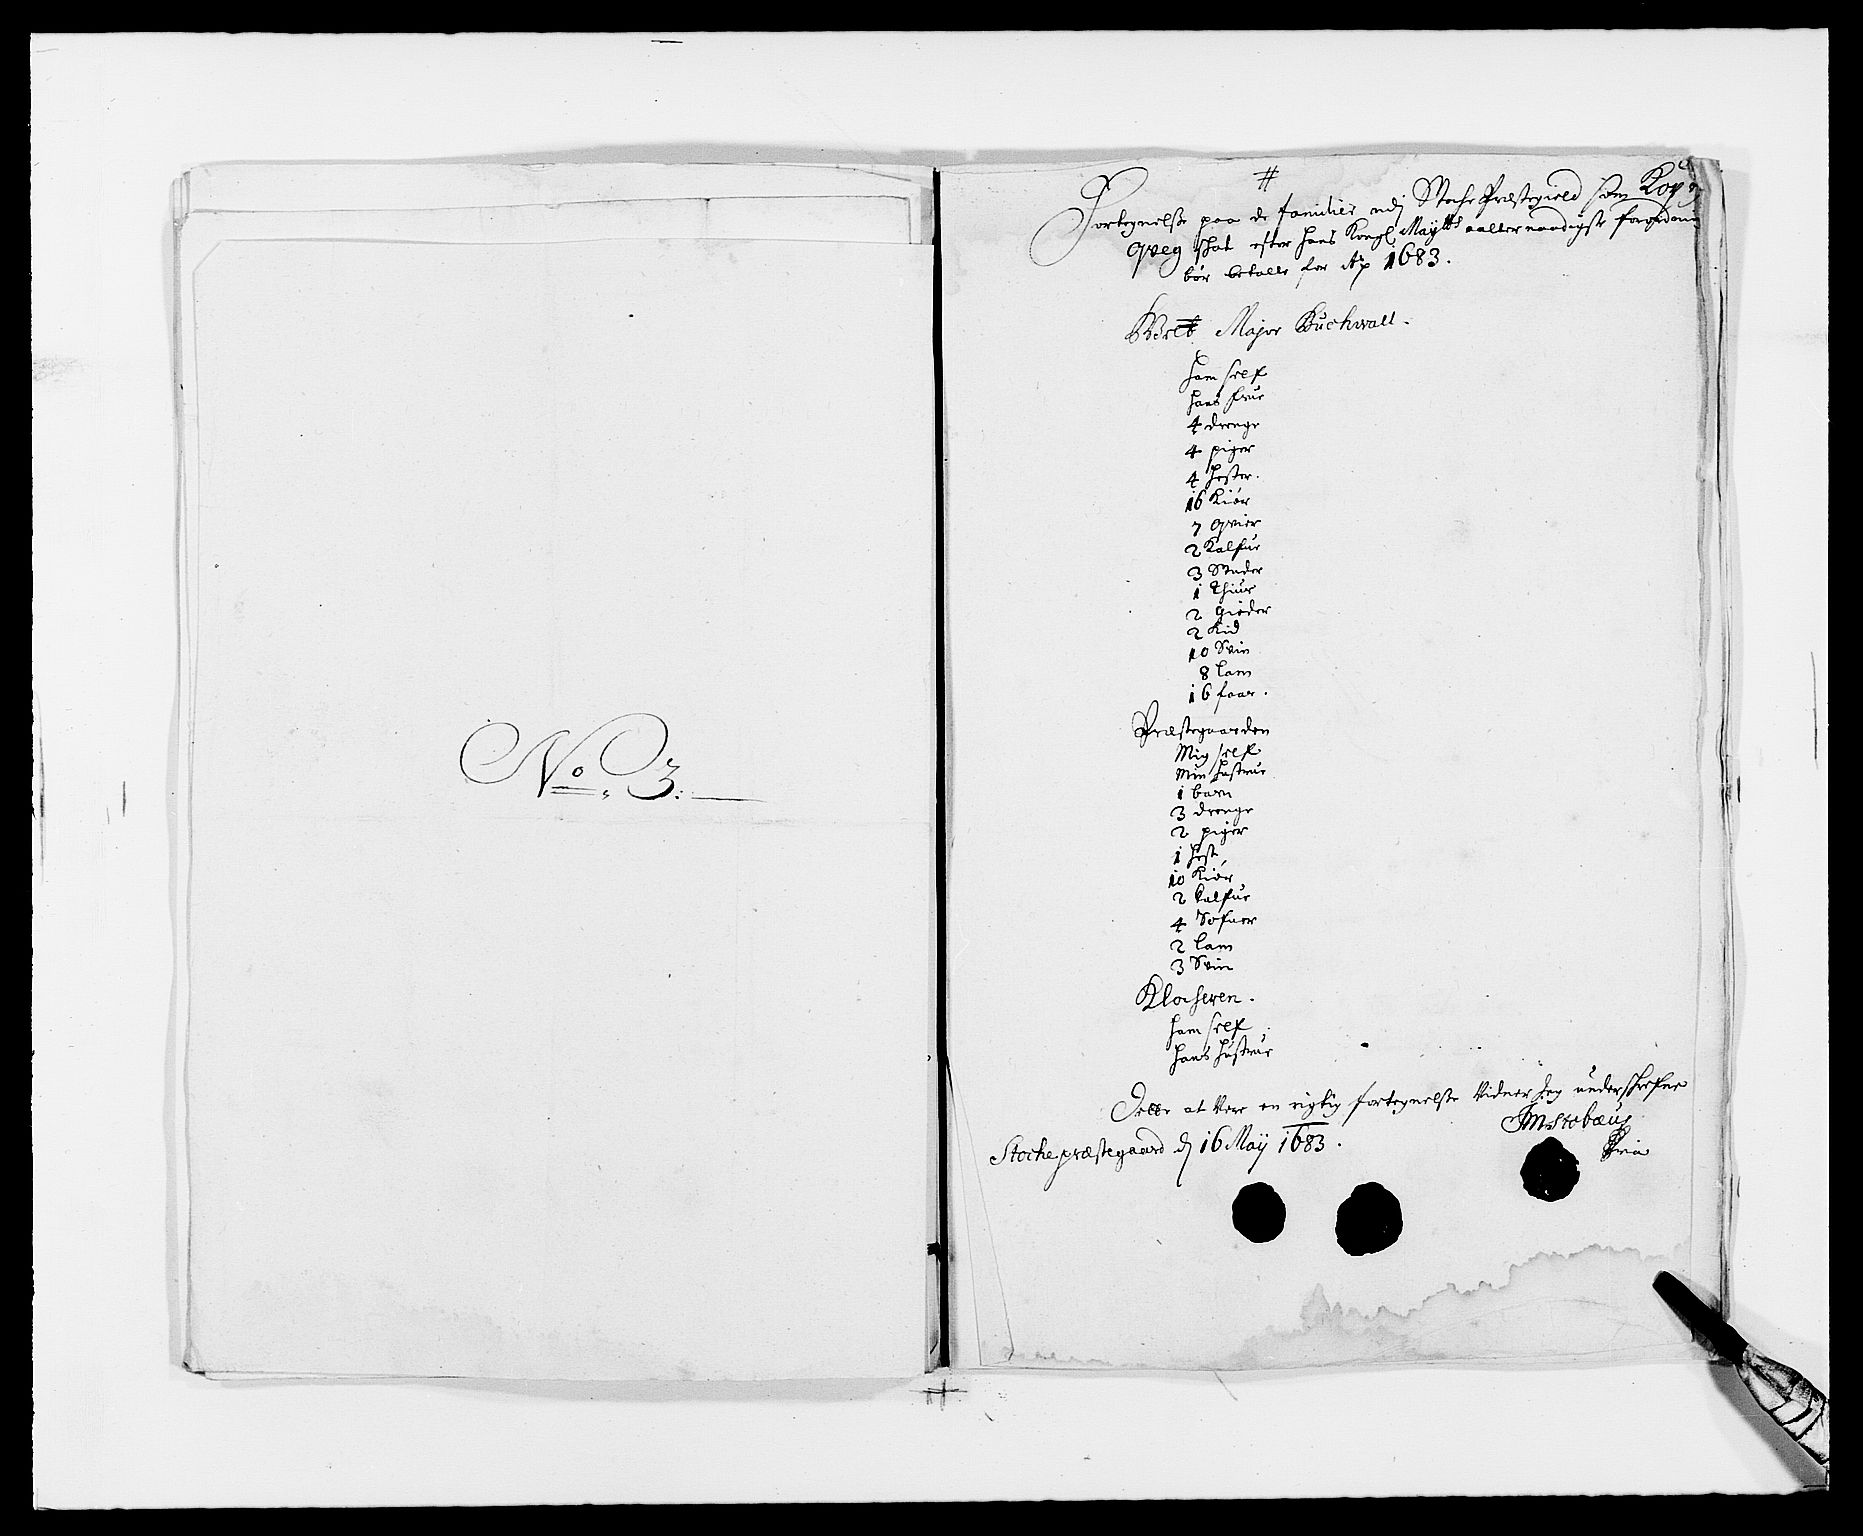 No. 3.
Fortegnelse paa de familier udj Stoche Præstegield som Kop og
qveg schat efter hans Kongl. Maytts aallernaadigste forordning
bør betalle for Ao 1683.
Major Buchwalt.
ham self
hans frue
4 drenge
4 piger
4 hester.
16 Kiør
7 qvier
2 Kalfue
3 Studer
1 Thiur
2 Gieder
2 Kid
10 Svin
8 Lam
16 faar.
Præstegaarden
Mig self
Min hustrue
1 barn
3 drenge
2 piger
1 hest
10 Kiør
2 Kalfue
4 Sofuer
2 Lam
3 Svin
Klocheren.
ham self
hans hustrue
Dette at Vere en rigtig fortegnelse Vidner Jeg underschrefne
JMStobæus
Stoche præstegaard d 16 Maij 1683.